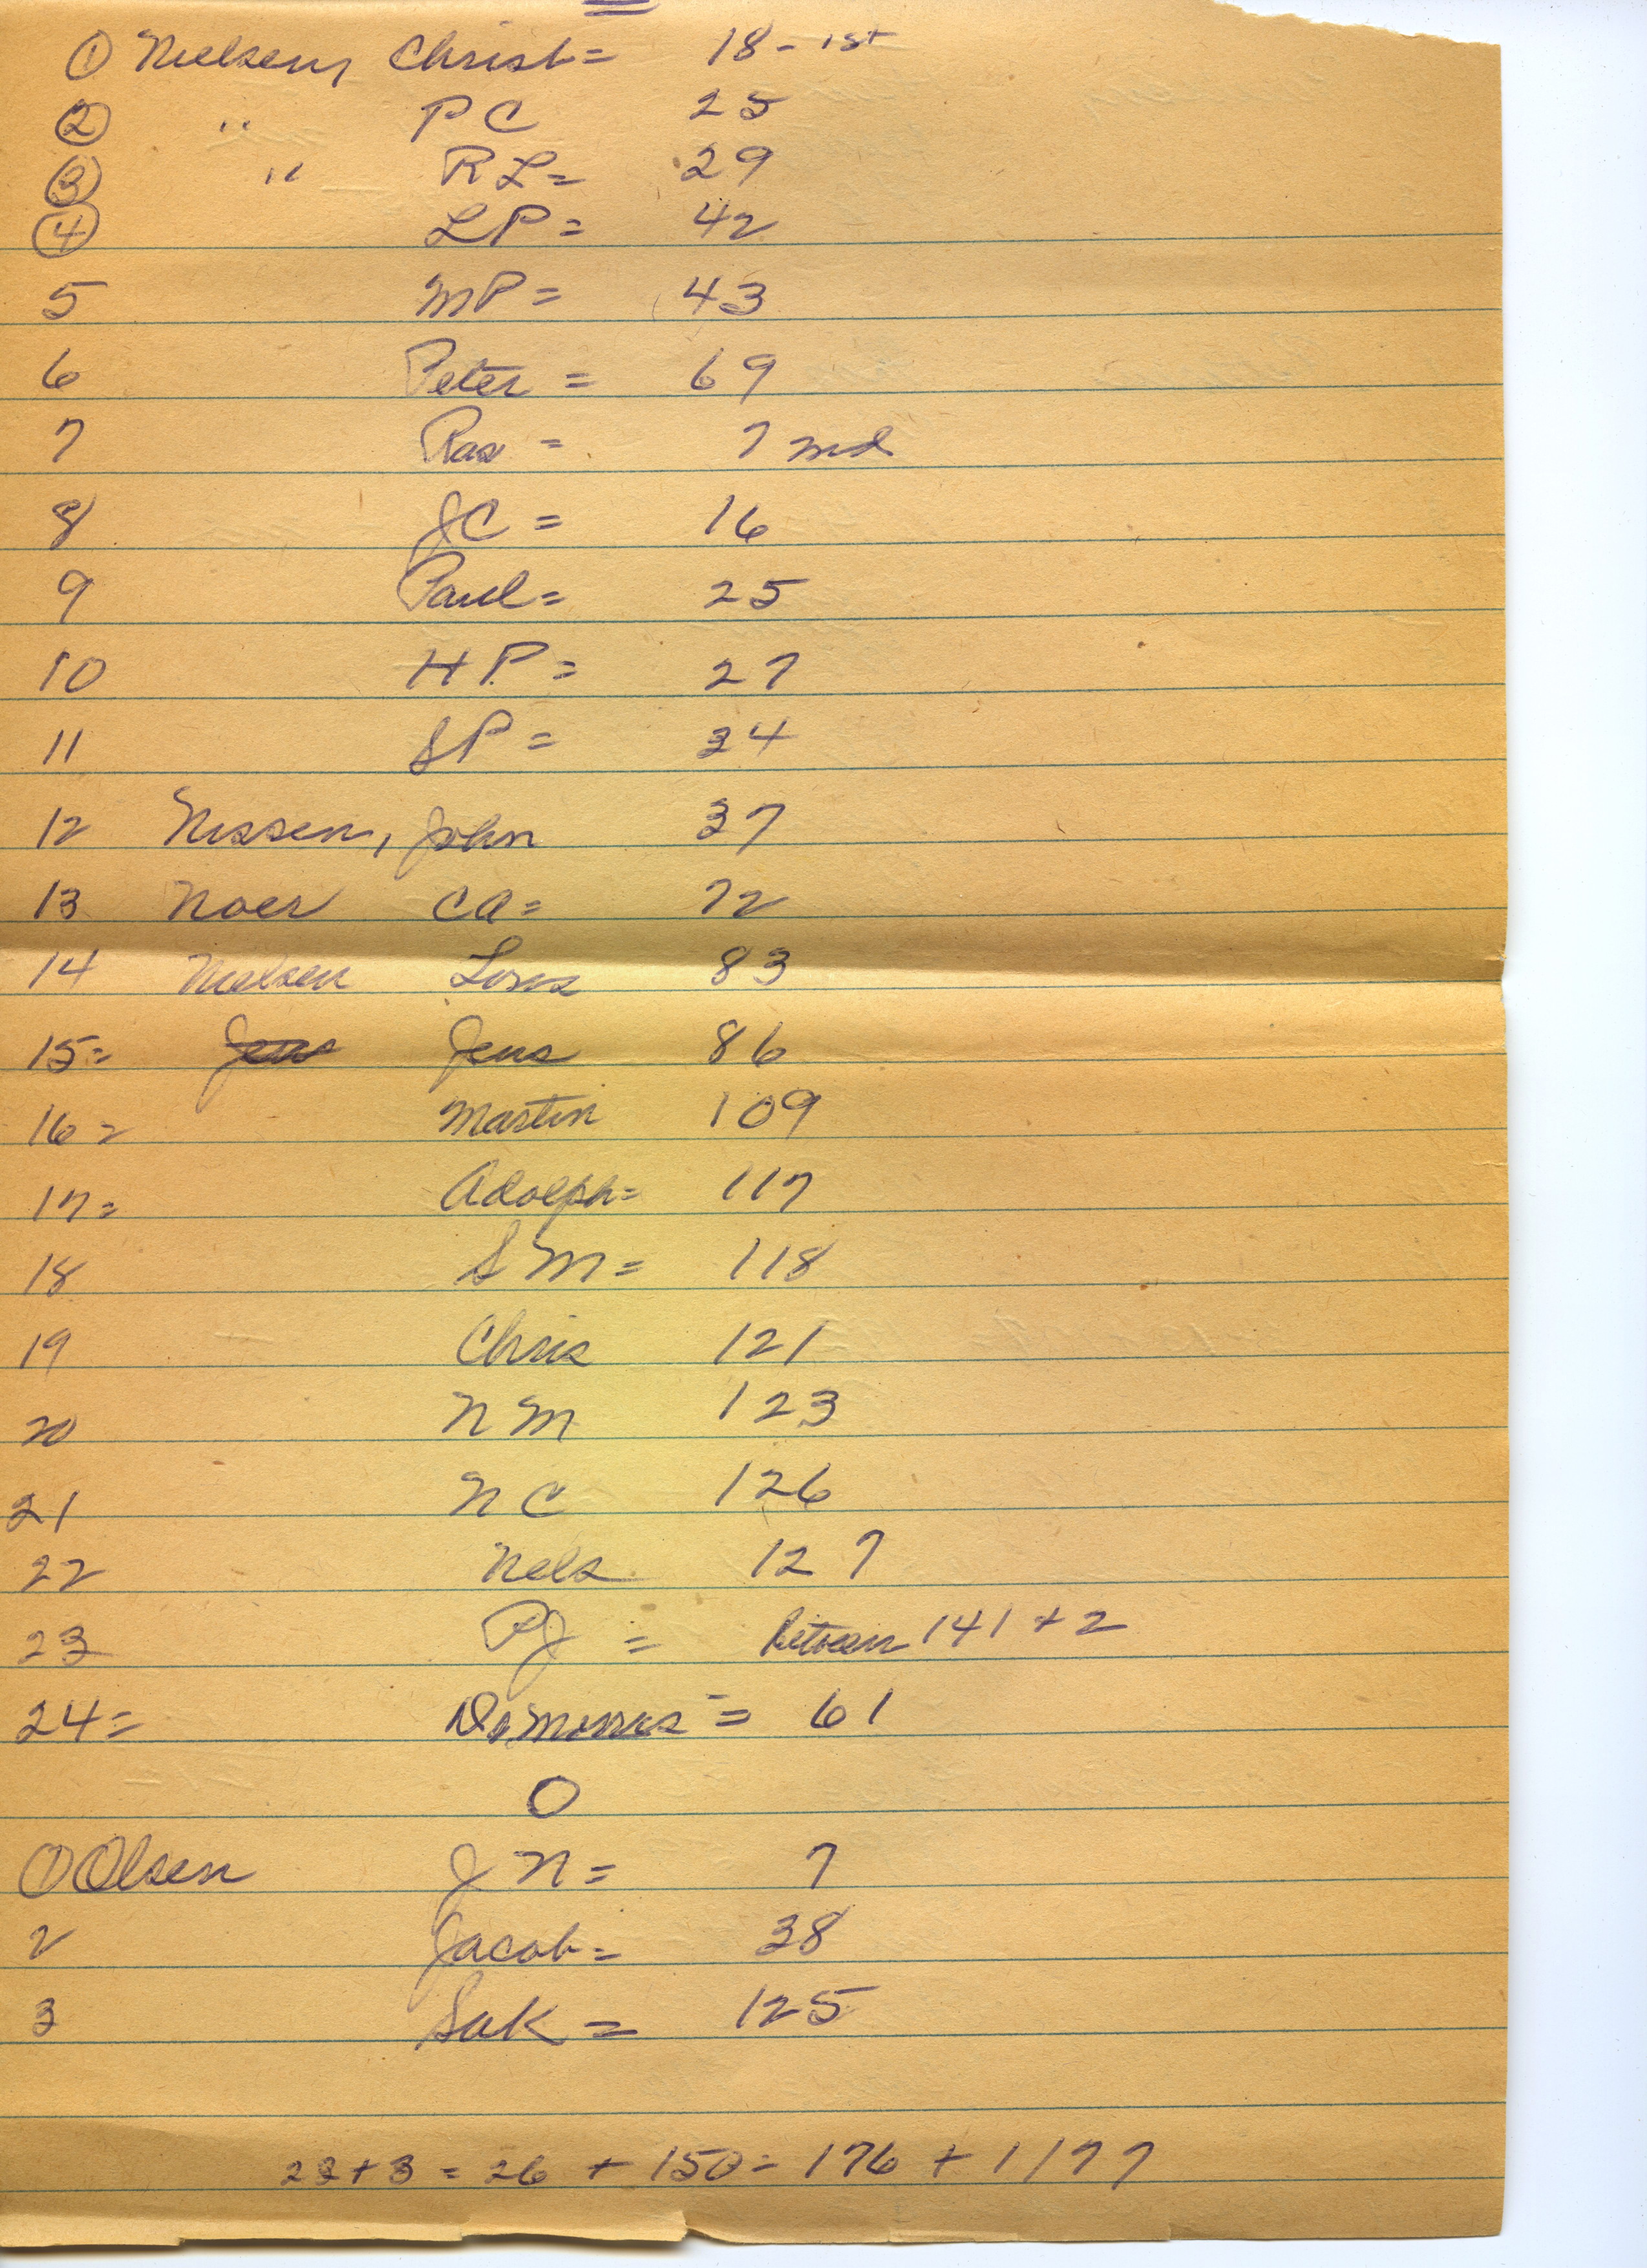 ① Nielsen, Christ = 18 - 1st
② " PC 25
③ " RL = 29
④ LP = 42
5 MP = 43
6 Peter = 69
7 Ras = 7 2nd
8 JC = 16
9 Paul = 25
10 H.P. = 27
11 SP = 34
12 Nissen, John 37
13 Noer CA = 72
14 Nielsen Louis 83
15 = Jens Jens 86
16 = Martin 109
17 = Adolph = 117
18 SM = 118
19 Chris 121
20 NM 123
21 NC 126
22 Nels 127
23 PJ = between 141 + 2
24 = = 61
O
① Olsen JN = 7
2 Jacob = 38
3 = 125
23 + 3 = 26 + 150 = 176 + 1 177